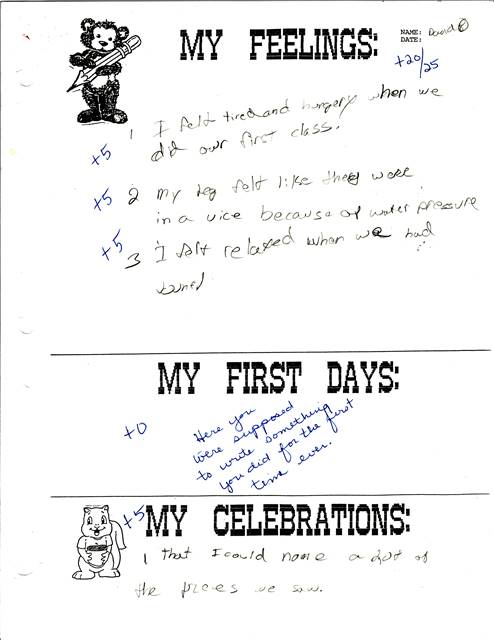 MY FEELINGS:
NAME: David
DATE:
+20/25
1 I felt tired and hungery when we
did our first class.
+5
+5 2 my leg felt like they were
in a vice because of water pressure
+5
3 I felt relaxed when we had
MY FIRST DAYS:
+0
Here you
were supposed
to write something
you did for the first
time ever.
+5 MY CELEBRATIONS:
1 that I could name a lot of
the pieces we saw.